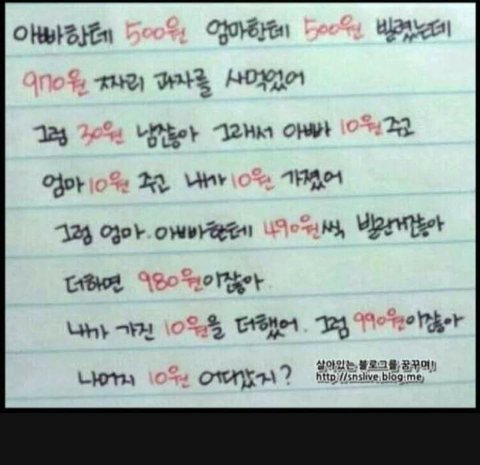 아빠한테 500원 엄마한테 500원 빌렸는데
970원 짜리 과자를 사먹었어
그럼 30원 남잖아 그래서 아빠 10원주고
엄마10원 주고 내가10원 가졌어
그럼 엄마.아빠한테 490원씩 빌린거잖아
더하면 980원이잖아.
내가 가진 10원을 더했어. 그럼 990원이잖아
나머지 10원 어디갔지?
살아있는 블로그를 꿈꾸며!
http://snslive.blog.me